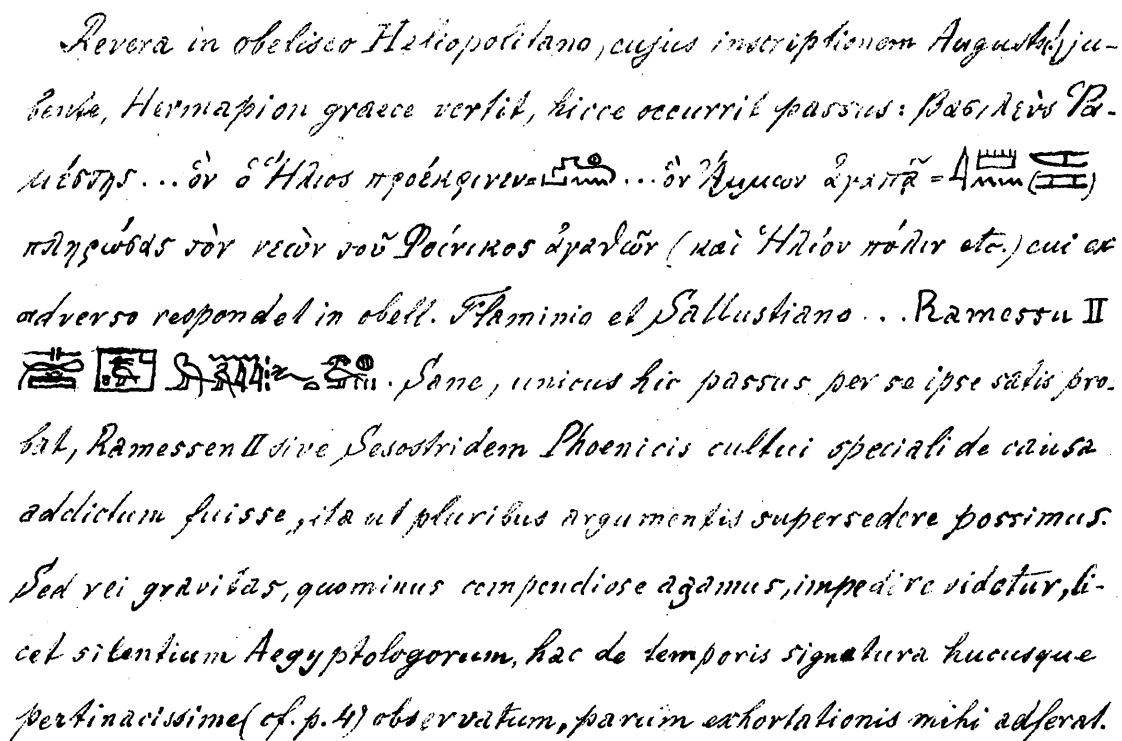 Revera in obelisco Heliopolitano, cujus inscriptionem Augusto ju-
bente, Hermapion graece vertit, hicce occurrit passus: βασιλεὺς Ῥα-
μέστης ... ὃν ὁ Ἥλιος προέκρινεν= ... ὃν Ἄμμων ἀγαπᾷ = ( )
πληρώσας τὸν νεὼν τοῦ Φοίνικος ἀγαθῶν (καὶ Ἡλίου πόλιν etc.) cui ex
adverso respondet in obell. Flaminio et Sallustiano ... Ramessu II
. Sane, unicus hic passus per se ipse satis pro-
bat, Ramessen II sive Sesostridem Phoenicis cultui speciali de causa
addictum fuisse, ita ut pluribus argumentis supersedere possimus.
Sed rei gravitas, quominus compendiose agamus, impedire videtur, li-
cet silentium Aegyptologorum, hac de temporis signatura hucusque
pertinacissime (cf. p. 4) observatum, parum exhortationis mihi adferat.